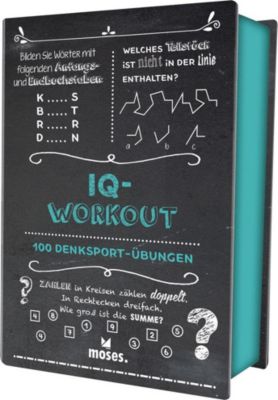 Bilden Sie Wörter mit
folgenden Anfangs-
und Endbuchstaben:
K ..... S
B ..... T
R ..... R
D ..... N
WELCHES Teilstück
ist nicht in der Linie
ENTHALTEN?
a b c
IQ-
WORKOUT
100 DENKSPORT-ÜBUNGEN
? ZAHLEN in Kreisen zählen doppelt.
In Rechtecken dreifach.
Wie groß ist die SUMME?
?
moses.